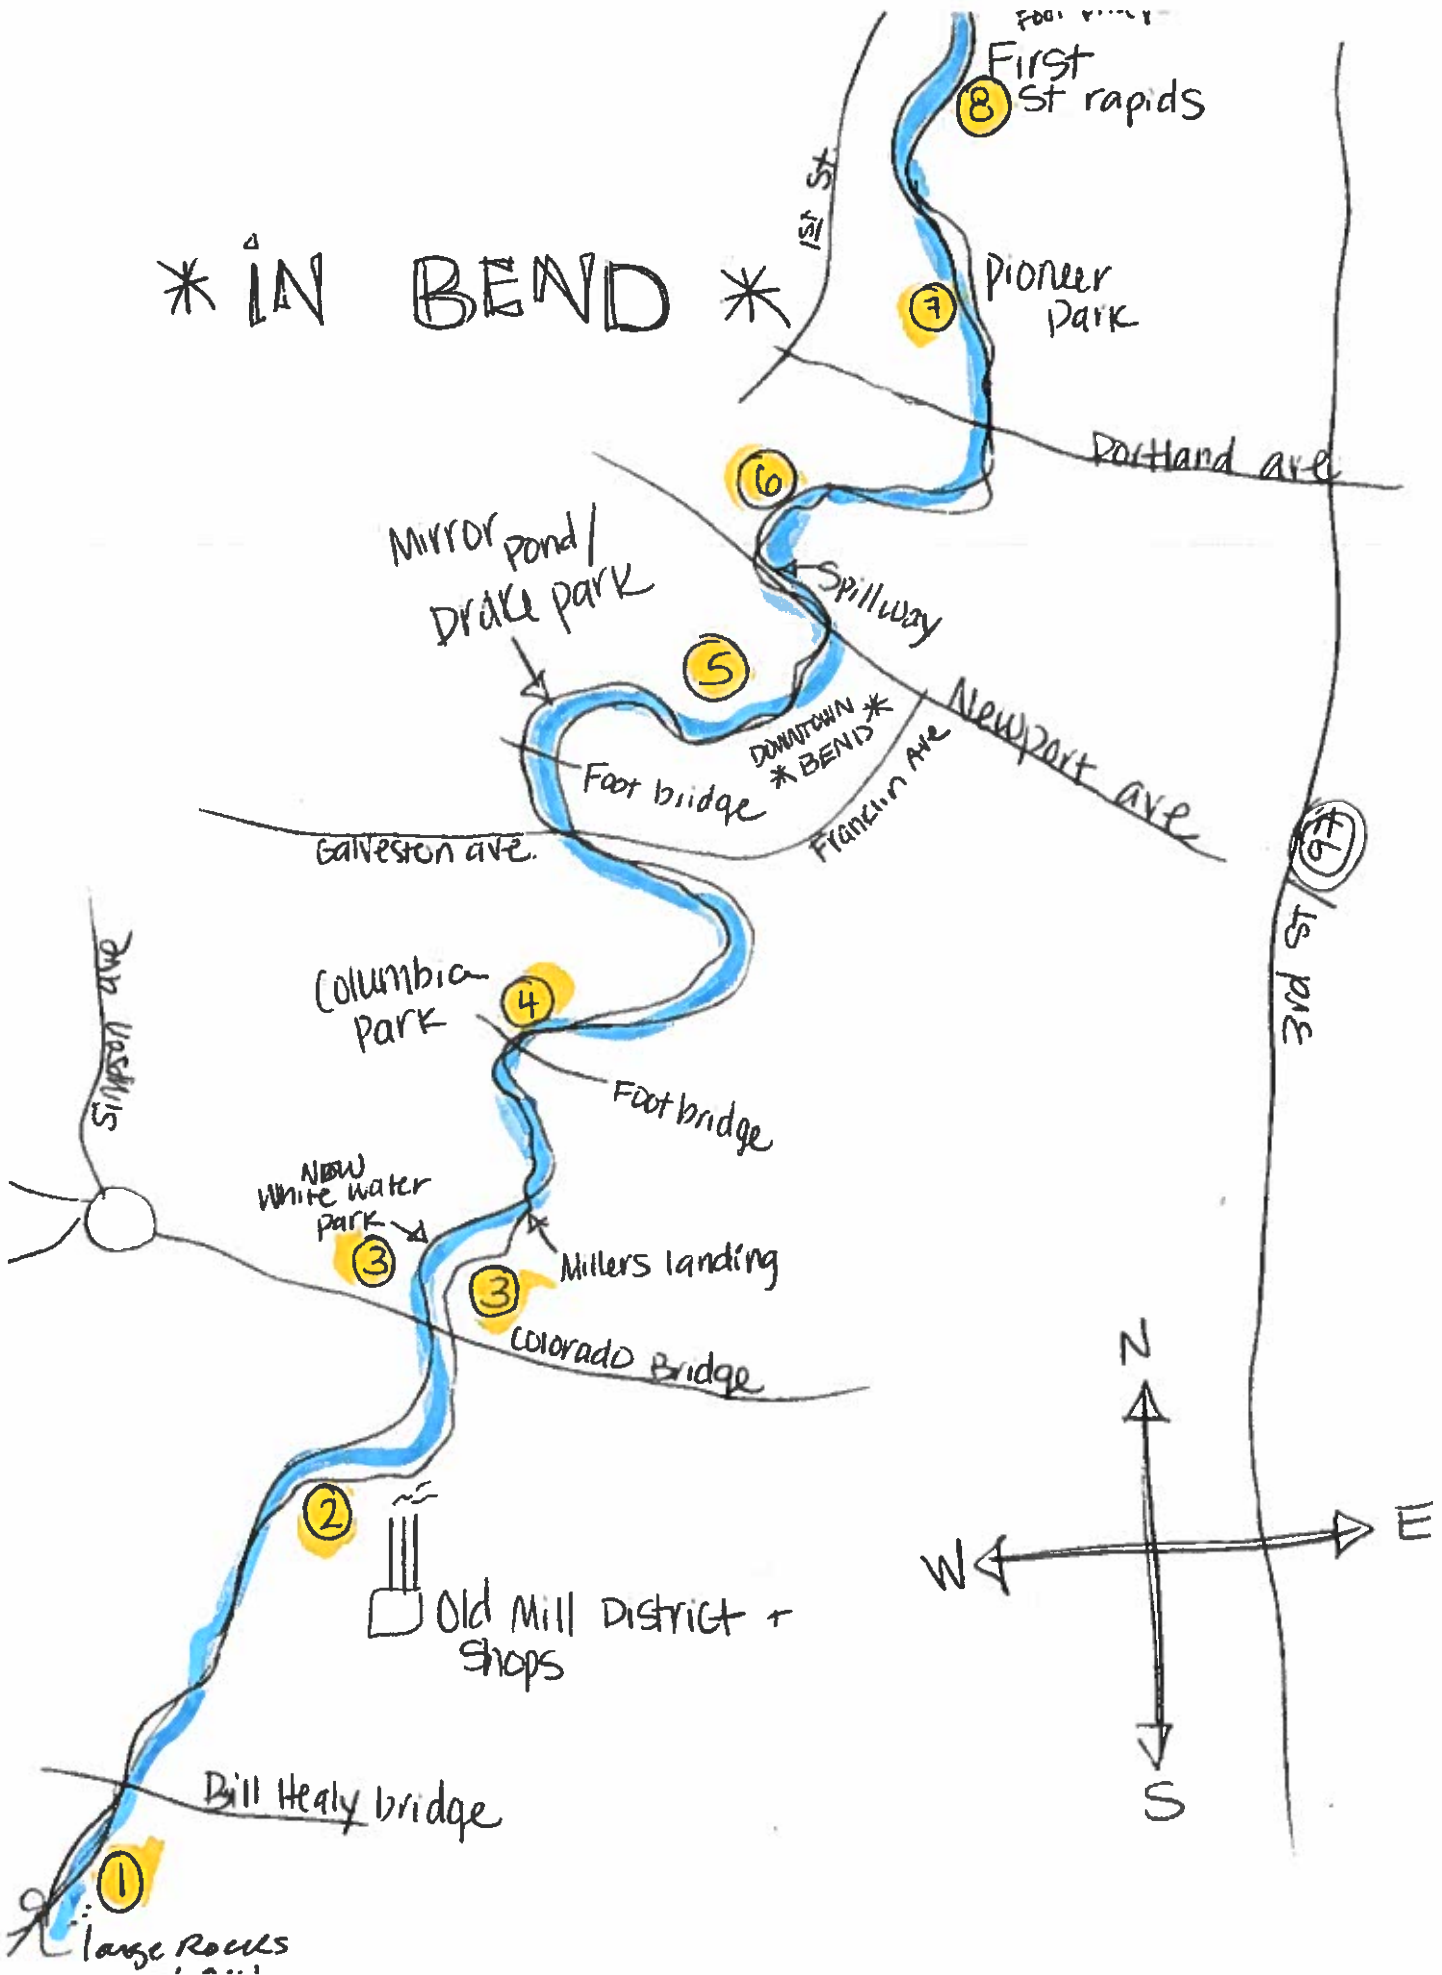 First
8 St rapids
1st St.
* IN BEND *
Pioneer
7
Park
Portland ave
6
Mirror pond/
Drake park
Spillway
5
Newport ave
DOWNTOWN
* BEND *
Foot bridge
Franklin Ave
Galveston ave.
97
3rd St
Simpson ave
Columbia
4
Park
Foot bridge
NEW
White water
park
3
Millers landing
3
Colorado Bridge
N
2
W
E
Old Mill District +
Shops
S
Bill Healy bridge
1
large Rocks